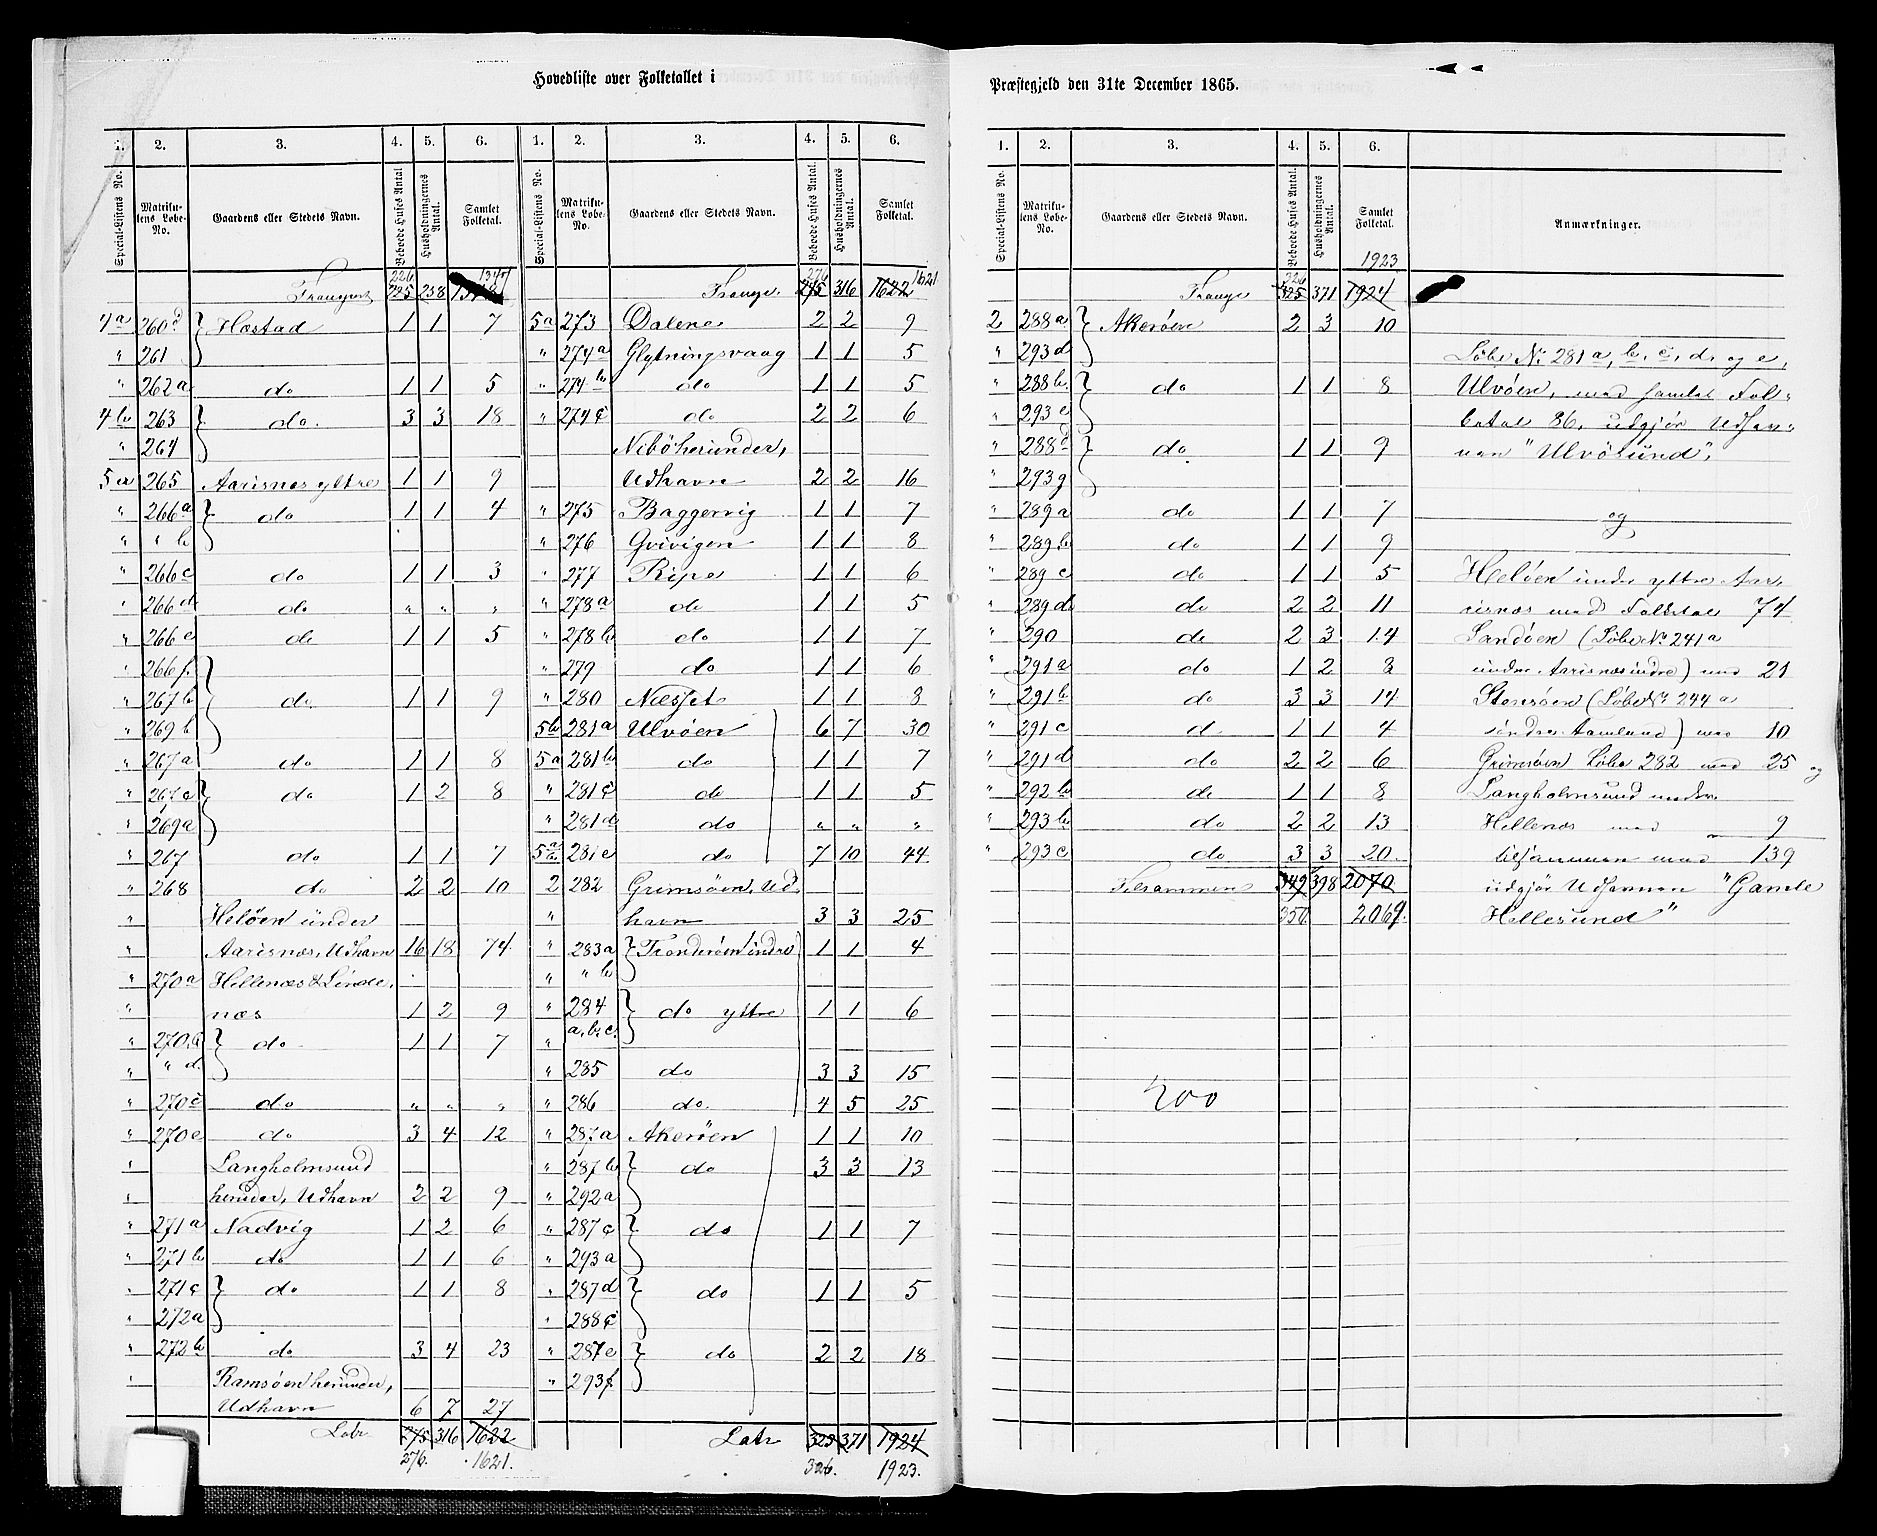 Hovedliste over Folketallet i
Præstegjeld den 31te December 1865.
1. 2. 3. 4. 5. 6.
Special-Listens No. Matrikulens Løbe-No. Gaardens eller Stedets Navn. Beboede Huses Antal Husholdningernes Antal. Samlet Folketal.
226 1347
Transport 225 258
4a 260d } Hæstad 1 1 7
" 261
" 262a do 1 1 5
4b 263 } do. 3 3 18
" 264
5a 265 Aarisnæs yttre 1 1 9
" 266a } do 1 1 4
" " b
" 266c do 1 1 3
" 266d do " " "
" 266e do 1 1 5
" 266f. }
" 267b do 1 1 9
" 269b
" 267a do 1 1 8
" 267c } do 1 2 8
" 269a
" 267 do 1 1 7
" 268 do 2 2 10
" Helöen under
" Aarisnæs, Udhavn 16 18 74
" 270a Hellenæs & Linde
" næs 1 2 9
" 270b } do 1 1 7
" " d.
" 270c do " " "
" 270e do 3 4 12
" Langholmsund
" herunder, Udhavn 2 2 9
" 271a Nadvig 1 2 6
" 271b do 1 1 6
" 271c } do 1 1 8
" 272a
" 272b do 3 4 23
" Ramsöen herunder,
Udhavn 6 7 27
Latr 275 316 1622
276. 1621.
1. 2. 3. 4. 5. 6.
Special-Listens No. Matrikulens Løbe-No. Gaardens eller Stedets Navn. Beboede Huses Antal. Husholdningernes Antal. Samlet Folketal.
276 1621
Transp. 275 316 1622
5a 273 Dalene 2 2 9
" 274a Glytningsvaag 1 1 5
" 274b do 1 1 5
" 274c do 2 2 6
Niböherunder,
Udhavn 2 2 16
" 275 Baggervig 1 1 7
" 276 Gvivigen 1 1 8
" 277 Ripe 1 1 6
" 278a do 1 1 5
" 278b do 1 1 7
" 279 do 1 1 6
" 280 Næsset 1 1 8
5b 281a Ulvöen 6 7 30
5a 281b do 1 1 7
" 281c do 1 1 5
" 281d do " " "
281e do 7 10 44
2 282 Grimsöen, Ud
" havn 3 3 25
" 283a } Tronderöen indre 1 1 4
" " b
" 284 } do yttre 1 1 6
" a, b, c.
" 285 do 3 3 15
" 286 do. 4 5 25
" 287a Akeröen 1 1 10
" 287b } do 3 3 13
" 292a
" 287c } do 1 1 7
" 293a
" 287d } do 1 1 5
" 288c
" 287e } do 2 2 18
" 293f
Latr 325 371 1924
326. 1923.
1. 2. 3. 4. 5. 6.
Special-Listens No. Matrikulens Løbe-No. Gaardens eller Stedets Navn. Beboede Huses Antal. Husholdningernes Antal. Samlet Folketal. Anmærkninger.
326 1923
Transp 325 371 1924
2 288a } Akeröen 2 3 10
" 293d
" 288b. } do 1 1 8
" 293e
" 288d } do 1 1 9
" 293g
" 289a do 1 1 7
" 289b do 1 1 9
" 289c do 1 1 5
" 289d do 2 2 11
" 290 do 2 3 14
" 291a do 1 2 8
" 291b do 3 3 14
" 291c do 1 1 4
" 291d do 2 2 6
" 292b do 1 1 8
" 293b do 2 2 13
" 293c do 3 3 20
Tilsammen 349 398 2070
350 2069.
200
Löbe No 281a, b, c, d, og e,
Ulvöen, med samlet Fol-
ketal 86, udgjör Udhav-
nen "Ulvösund",
og
Helöen under yttre Aa-
risnæs med Folketal 74
Sandöen (Löbe No 241a
under Aarisnæs indre) med 21
Storöen (Löbe No 244a
söndre Aamland) med 10
Grimsöen Löbe 282 med 25 og
Langholmsund under
Hellenæs med 9
tilsammen med 139
udgjör Udhavnen "Gamle
Hellesund"